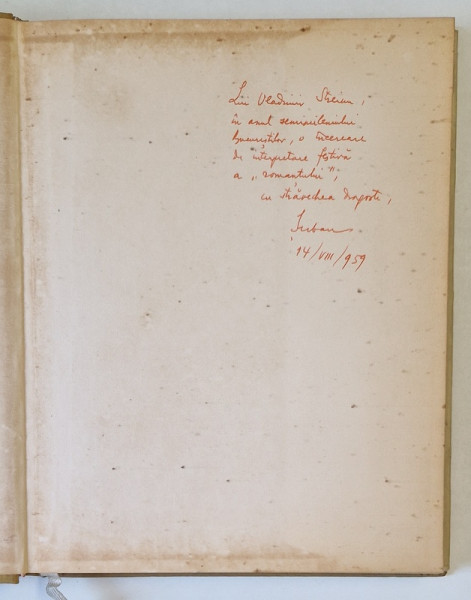 Lui Vladimir Streinu,
în anul semimileniului
Bucureștilor, o încercare
de interpretare festivă
a „romantului”,
cu străvechea dragoste,
Șerban
14/VIII/959